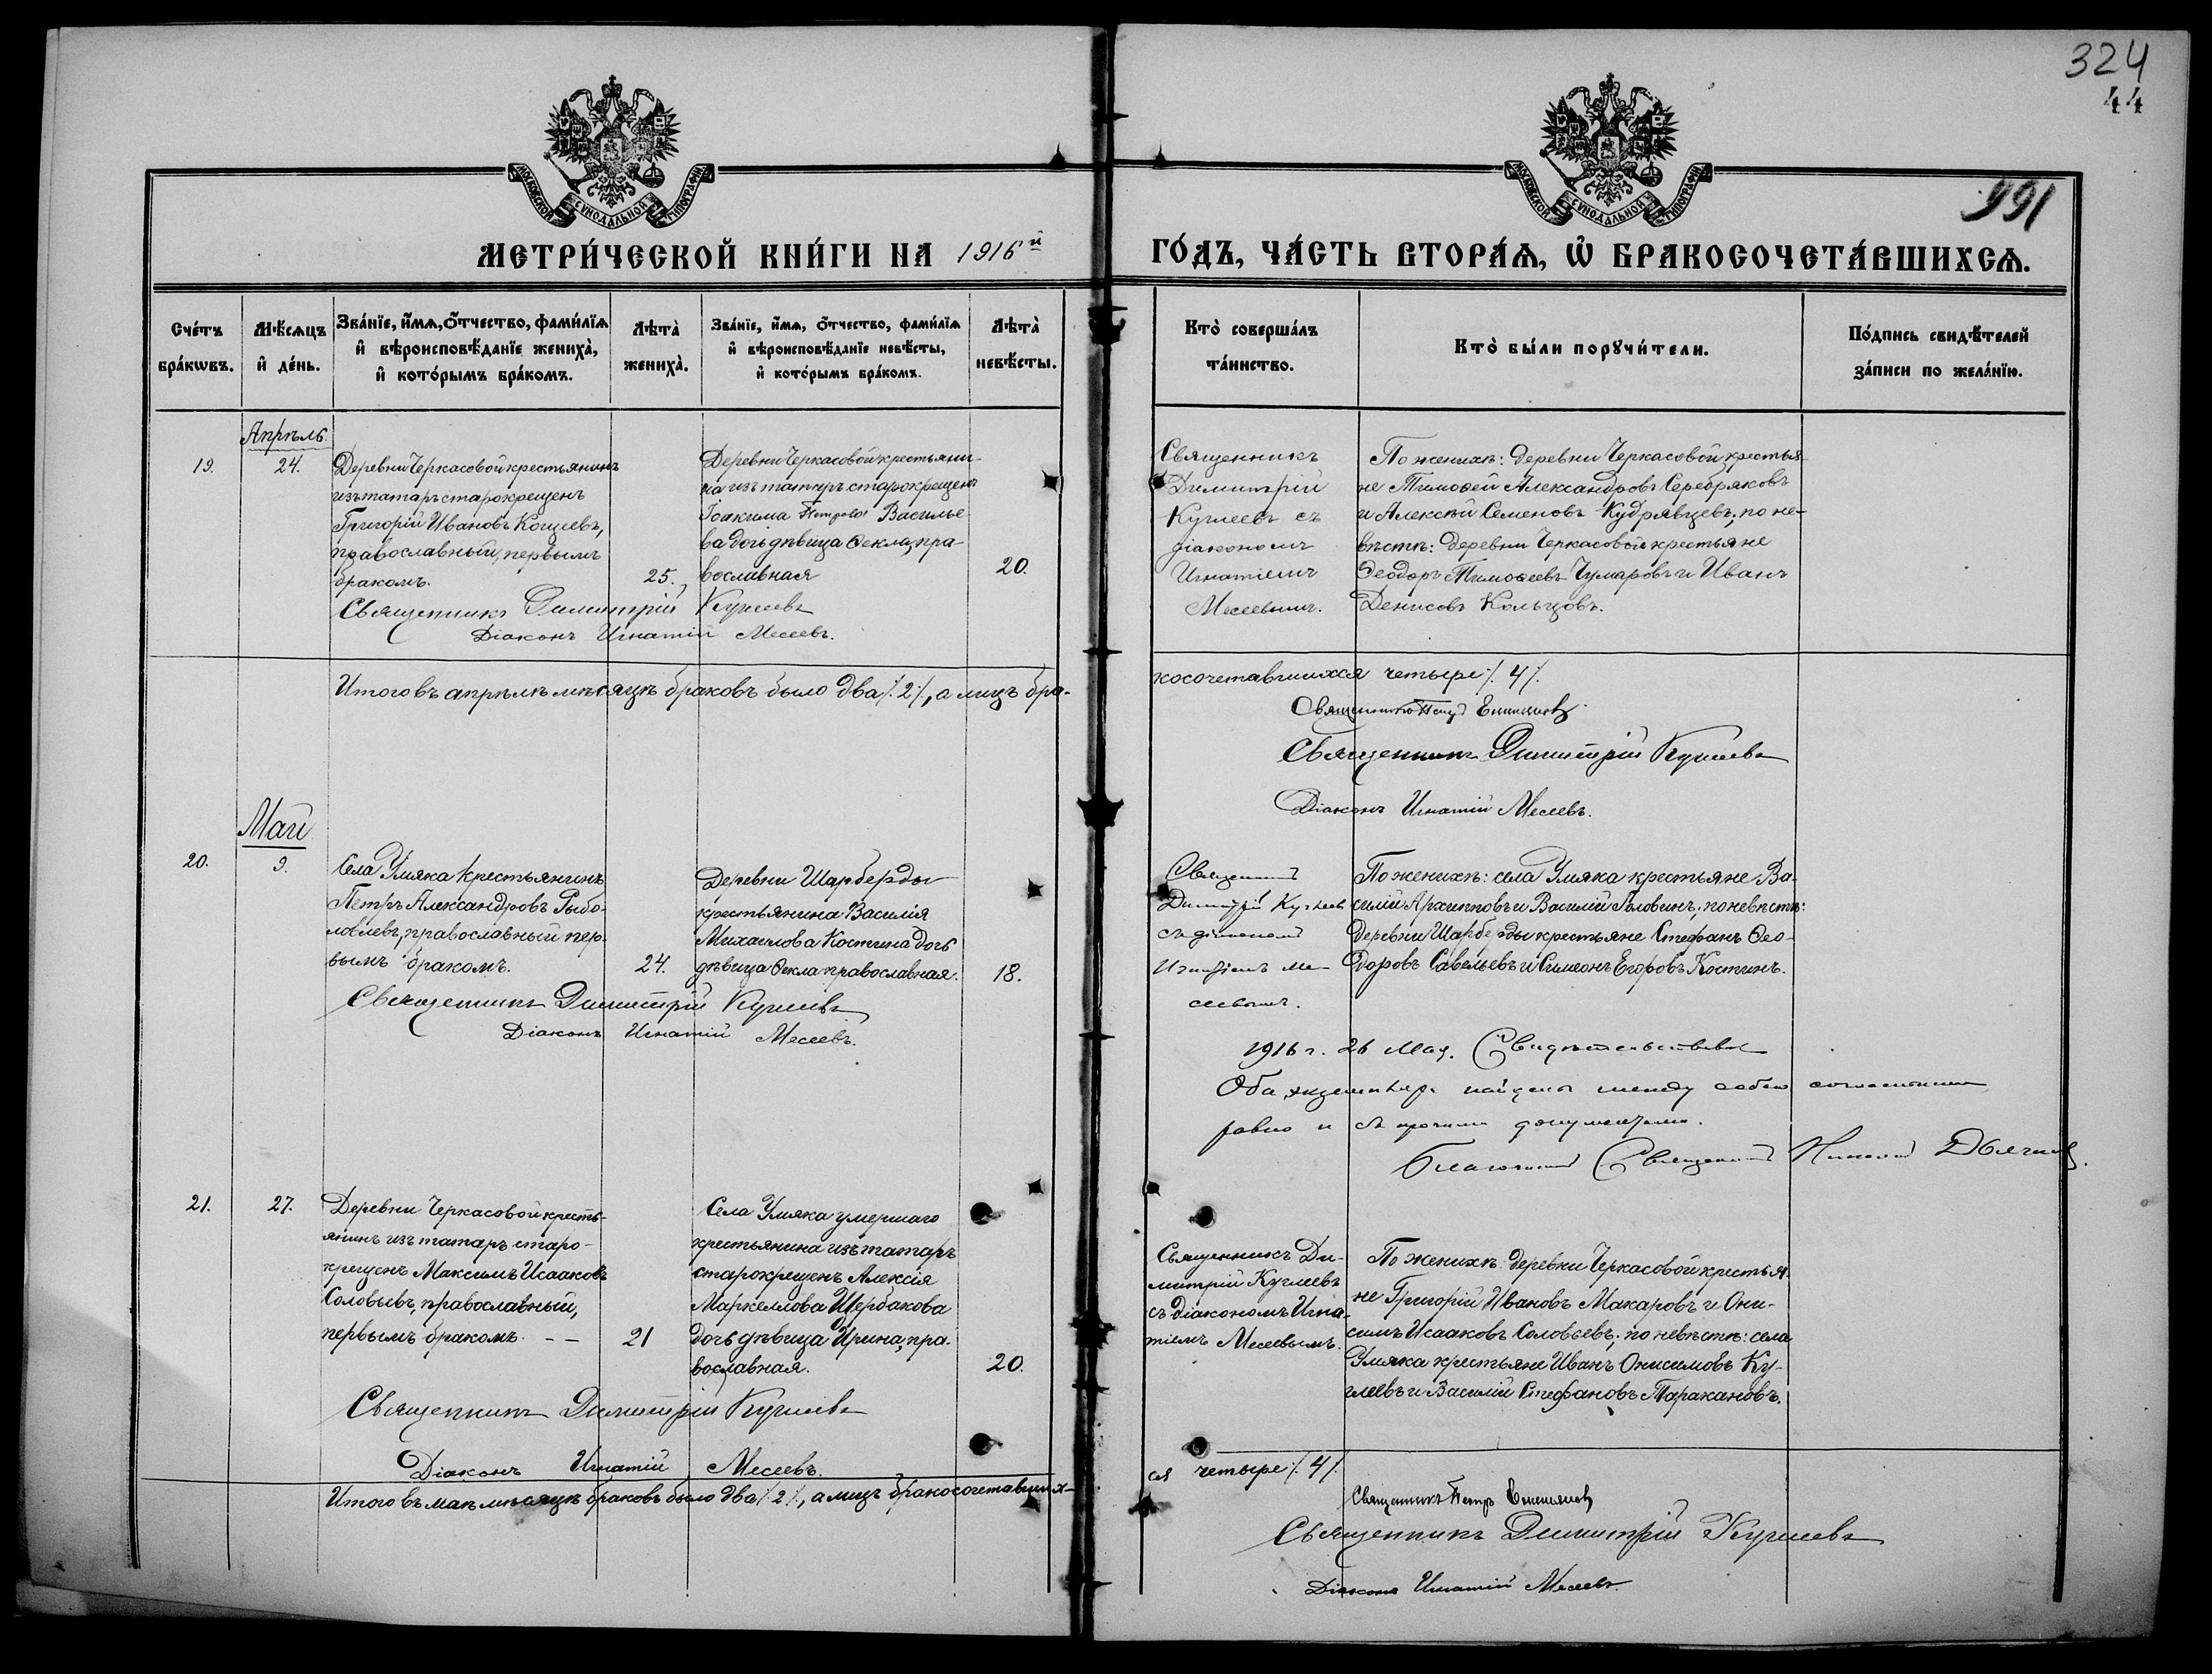 324
44
991
МОСКОВСКОЙ СѴНОДАЛЬНОЙ ТИПОГРАФІИ
МОСКОВСКОЙ СѴНОДАЛЬНОЙ ТИПОГРАФІИ
МЕТРИ́ЧЕСКОЙ КНИ́ГИ НА 1916й
ГО́ДЪ, ЧА́СТЬ ВТОРА́Ѧ, Ѡ҆ БРАКОСОЧЕТА́ВШИХСѦ.
Сче́тъ
бра́кѡвъ.
Мѣ́сѧцъ
и҆ де́нь.
Зва́нїе, и҆́мѧ, ѻ҆́тчество, фами́лїѧ
и҆ вѣроисповѣ́данїе жениха̀,
и҆ кото́рымъ бра́комъ.
Лѣта̀
жениха̀.
Зва́нїе, и҆́мѧ, ѻ҆́тчество, фами́лїѧ
и҆ вѣроисповѣ́данїе невѣ́сты,
и҆ кото́рымъ бра́комъ.
Лѣта̀
невѣ́сты.
Кто̀ соверша́лъ
та́инство.
Кто̀ бы́ли порꙋчи́тели.
По́дпись свидѣ́телей
за́писи по жела́нїю.
Апрѣль.
19.
24.
Деревни Черкасовой крестьянинъ
изъ татаръ старокрещенъ
Григорій Ивановъ Кощеевъ,
православный, первымъ
бракомъ.
25.
Деревни Черкасовой крестьяни-
на изъ татаръ старокрещенъ
Іоакима Петрова Василье
ва дочь дѣвица Ѳекла, пра-
вославная
20.
Священникъ
Димитрій
Куглеевъ съ
діакономъ
Игнатіемъ
Месеевымъ.
По женихѣ: деревни Черкасовой крестья-
не Тимоѳей Александровъ Серебряковъ
и Алексѣй Семеновъ Кудрявцевъ, по не-
вѣстѣ: деревни Черкасовой крестьяне
Ѳеодоръ Тимоѳеевъ Чумаровъ и Иванъ
Денисовъ Кольцовъ.
Священникъ Димитрій Куглеевъ
Діаконъ Игнатій Месеевъ.
Итого въ апрѣлѣ мѣсяцѣ браковъ было два /. 2 /., а лицъ бра-
косочетавшихся четыре /. 4 /.
Священникъ Петръ Емельяновъ
Священникъ Димитрій Куглеевъ
Діаконъ Игнатій Месеевъ.
Май
20.
9.
Села Умяка крестьянинъ
Петръ Александровъ Рыбо-
ловлевъ, православный, пер-
вымъ бракомъ.
24.
Деревни Шарберды
крестьянина Василія
Михаилова Костина дочь
дѣвица Ѳекла православная.
18.
Священникъ
Димитрій Куглеевъ
съ діакономъ
Игнатіемъ Ме-
сеевымъ.
По женихѣ: села Умяка крестьяне Ва-
силій Архипповъ и Василій Головинъ, по невѣстѣ:
деревни Шарберды крестьяне Стефанъ Ѳео-
доровъ Савельевъ и Симеонъ Егоровъ Костинъ.
Священникъ Димитрій Куглеевъ
Діаконъ Игнатій Месеевъ.
1916 г. 26 Мая. Свидѣтельствовалъ
Оба экземпляра найдены между собою согласными
равно и съ прочими документами.
Благочинный Священникъ Николай
21.
27.
Деревни Черкасовой кресть-
янинъ изъ татаръ старо-
крещенъ Максимъ Исааковъ
Соловьевъ, православный,
первымъ бракомъ. – –
21
Села Умяка умершаго
крестьянина изъ татаръ
старокрещенъ Алексія
Маркеллова Щербакова
дочь дѣвица Ирина, пра-
вославная.
20.
Священникъ Ди-
митрій Куглеевъ
съ діакономъ Игна-
тіемъ Месеевымъ.
По женихѣ: деревни Черкасовой крестья-
не Григорій Ивановъ Макаровъ и Они-
симъ Исааковъ Соловьевъ; по невѣстѣ: села
Умяка крестьяне Иванъ Онисимовъ Ку-
глеевъ и Василій Стефановъ Таракановъ.
Священникъ Димитрій Куглеевъ
Діаконъ Игнатій Месеевъ.
Итого въ маѣ мѣсяцѣ браковъ было два /. 2 /., а лицъ бракосочетавших-
ся четыре /. 4 /.
Священникъ Петръ Емельяновъ
Священникъ Димитрій Куглеевъ
Діаконъ Игнатій Месеевъ.